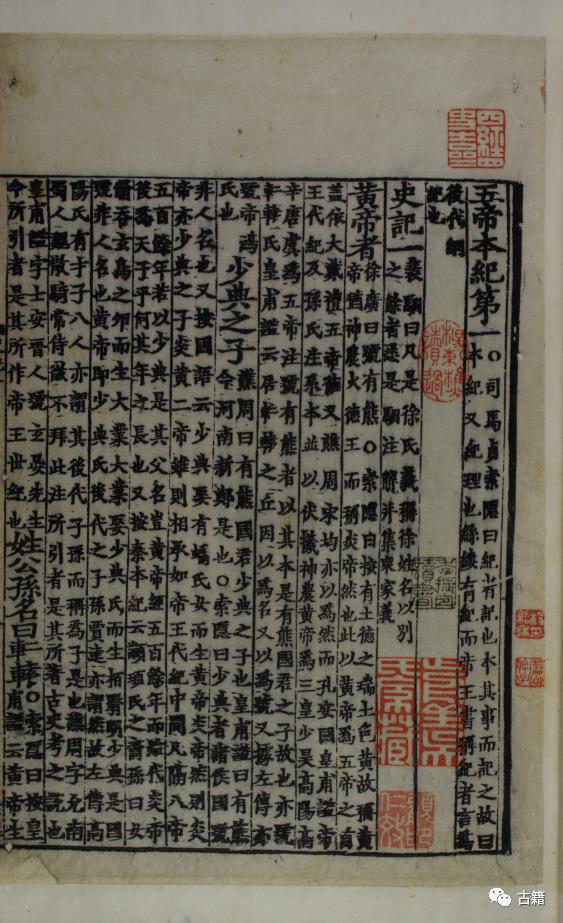 五帝本紀第一
○司馬貞索隱曰紀者記也本其事而記之故曰
本紀又紀理也絲縷有紀而帝王書稱紀者言爲
後代綱
紀也
史記一
裴駰曰凡是徐氏義稱徐姓名以別
之餘者悉是駰注解并集衆家義
黃帝者
徐廣曰號有熊○索隱曰按有土德之瑞土色黃故稱黃
帝猶神農火德王而稱炎帝然也此以黃帝爲五帝之首
蓋依大戴禮五帝德又譙周宋均亦以爲然而孔安國皇甫謐帝
王代紀及孫氏注系本並以伏犧神農黃帝爲三皇少昊高陽高
辛唐虞爲五帝注號有熊者以其本是有熊國君之子故也亦號
軒轅氏皇甫謐云居軒轅之丘因以爲名又以爲號又據左傳亦
號帝鴻
氏也
少典之子
譙周曰有熊國君少典之子也皇甫謐曰有熊
今河南新鄭是也○索隱曰少典者諸侯國號
非人名也又按國語云少典娶有蟜氏女而生黃帝炎帝然則炎
帝亦少典之子炎黃二帝雖則相承如帝王代紀中間凡隔八帝
五百餘年若以少典是其父名豈黃帝經五百餘年而始代炎帝
後爲天子乎何其年之長也又按秦本紀云顓頊氏之裔孫曰女
脩吞玄鳥之卵而生大業大業娶少典氏而生栢翳明少典是國
號非人名也黃帝即少典氏後代之子孫賈逵亦謂然故左傳高
陽氏有才子八人亦謂其後代子孫而稱爲子是也譙周字允南
蜀人魏散騎常侍徵不拜此注所引者是其所著古史考之說也
皇甫謐字士安晉人號玄晏先生
今所引者是其所作帝王世紀也
姓公孫名曰軒轅
○索隱曰按皇
甫謐云黃帝生
古籍